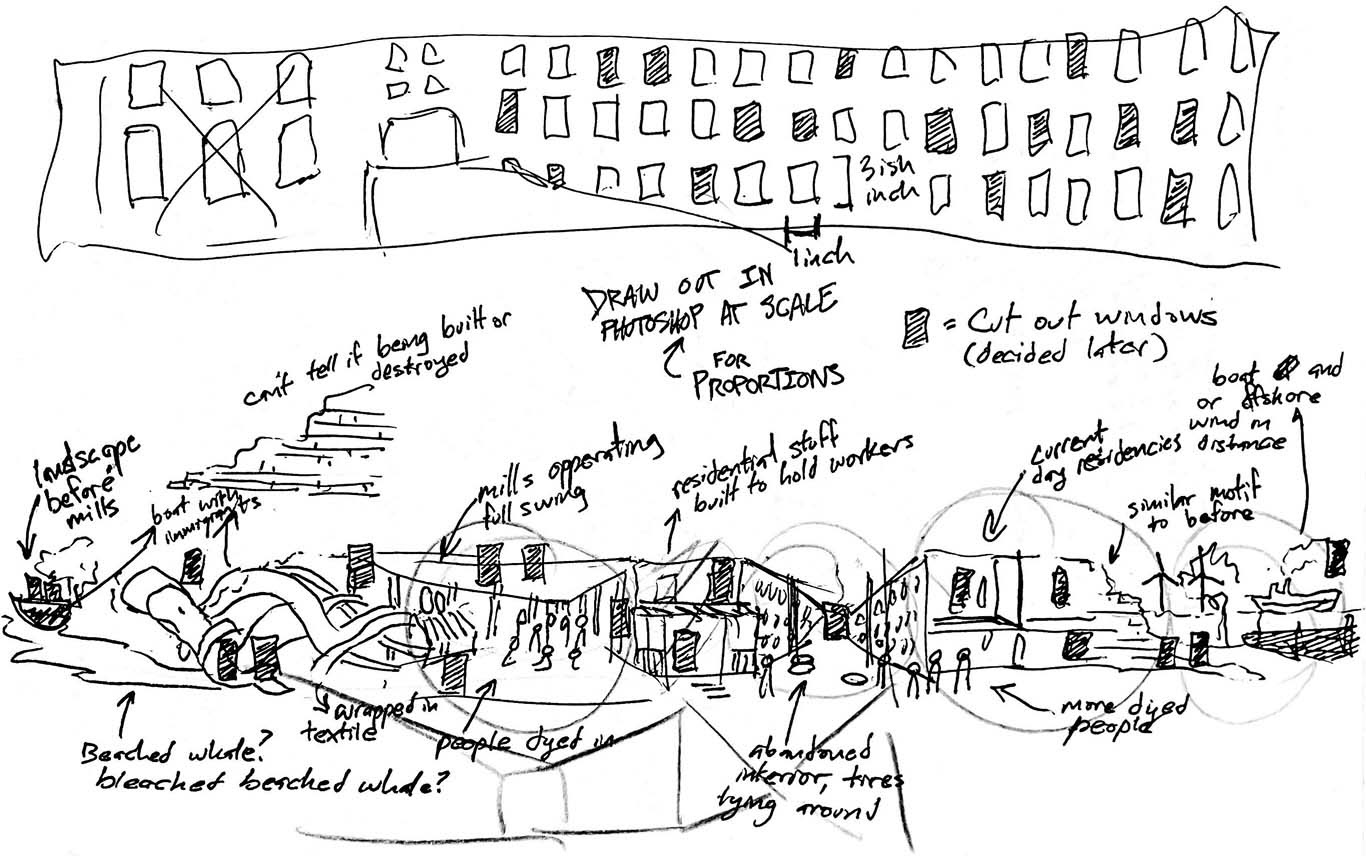 3ish
inch
1 inch
DRAW OUT IN
PHOTOSHOP AT SCALE
FOR
PROPORTIONS
= Cut out windows
(decided later)
can't tell if being built or
destroyed
landscape
before
mills
boat with
immigrants
mills opperating
full swing
residential stuff
built to hold workers
current
day residencies
similar motif
to before
boat and
or offshore
wind in
distance
Beached whale?
bleached beached whale?
wrapped in
textile
people dyed in
abandoned
interior, tires
lying around
more dyed
people